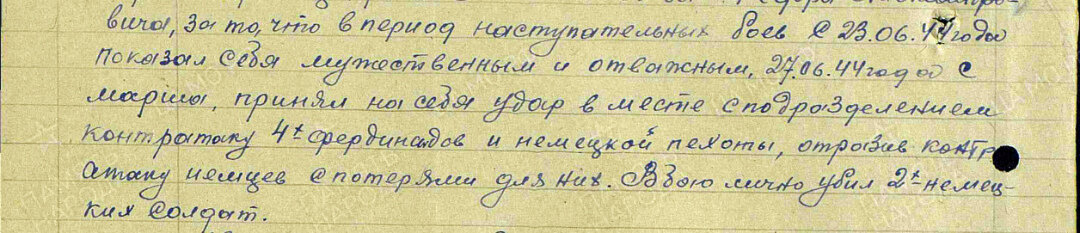 вича, за то, что в период наступательных боев с 23.06.44 года
показал себя мужественным и отважным, 27.06.44 года с
марша, принял на себя удар в месте с подразделением
контратаку 4х фердинадов и немецкой пехоты, отразив контр
атаку немцев с потерями для них. В бою лично убил 2х немец-
ких солдат.